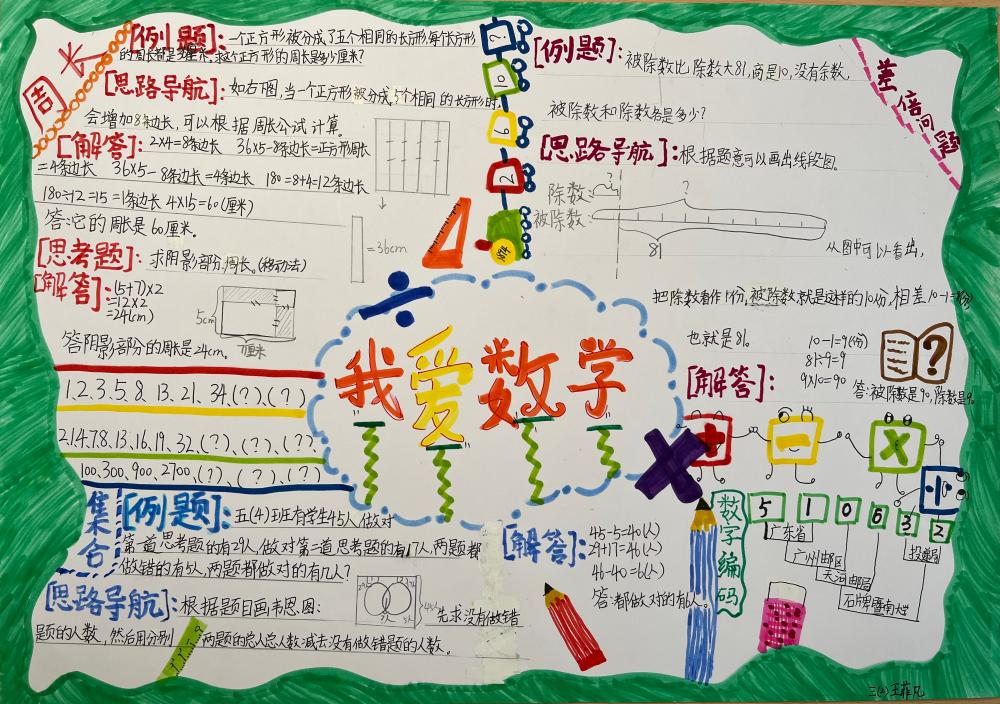 周长
[例题]:一个正方形被分成了五个相同的长方形,每个长方形
的周长都是36厘米,求这个正方形的周长是多少厘米?
[思路导航]:如右下图,当一个正方形被分成5个相同的长方形时,
会增加8条边长,可以根据周长公试计算。
[解答]:2×4=8条边长 36×5-8条边长=正方形周长
=4条边长 36×5-8条边长=4条边长 180=8+4=12条边长
180÷12=15=1条边长 4×15=60(厘米)
答:它的周长是60厘米。
=36cm
[思考题]:求阴影部分周长。(移动法)
[解答]:(5+7)×2
=12×2
=24(cm)
5cm
7厘米
答阴影部分的周长是24cm。
1.2.3.5.8.13.21.34.(?).(?)
2.14.7.8.13.16.19.32.(?).(?).(??)
100.300.900.2700.(?).(?).(?)
集合
[例题]:五(4)班有学生45人做对
第一道思考题的有29人,做对第二道思考题的有17人,两题都
做错的有5人,两题都做对的有几人?
[思路导航]:根据题目画韦恩图:
先求没有做错
题的人数,然后用分别
两题的总人总人数减去没有做错题的人数。
[解答]:45-5=40(人)
29+17=46(人)
46-40=6(人)
答:都做对的有6人。
我爱数学
差倍问题
[例题]:被除数比除数大81,商是10,没有余数,
被除数和除数各是多少?
[思路导航]:根据题意可以画出线段图。
除数:
?
被除数:
?
81
从图中可以看出,
把除数看作1份,被除数就是这样的10份,相差10-1=9(份)
也就是81。
[解答]:
10-1=9(份)
81÷9=9
9×10=90
答:被除数是90,除数是9。
?
数字编码
5 1 0 6 3 2
广东省
广州邮区
天河邮局
石牌暨南大学
三(4)王菲凡